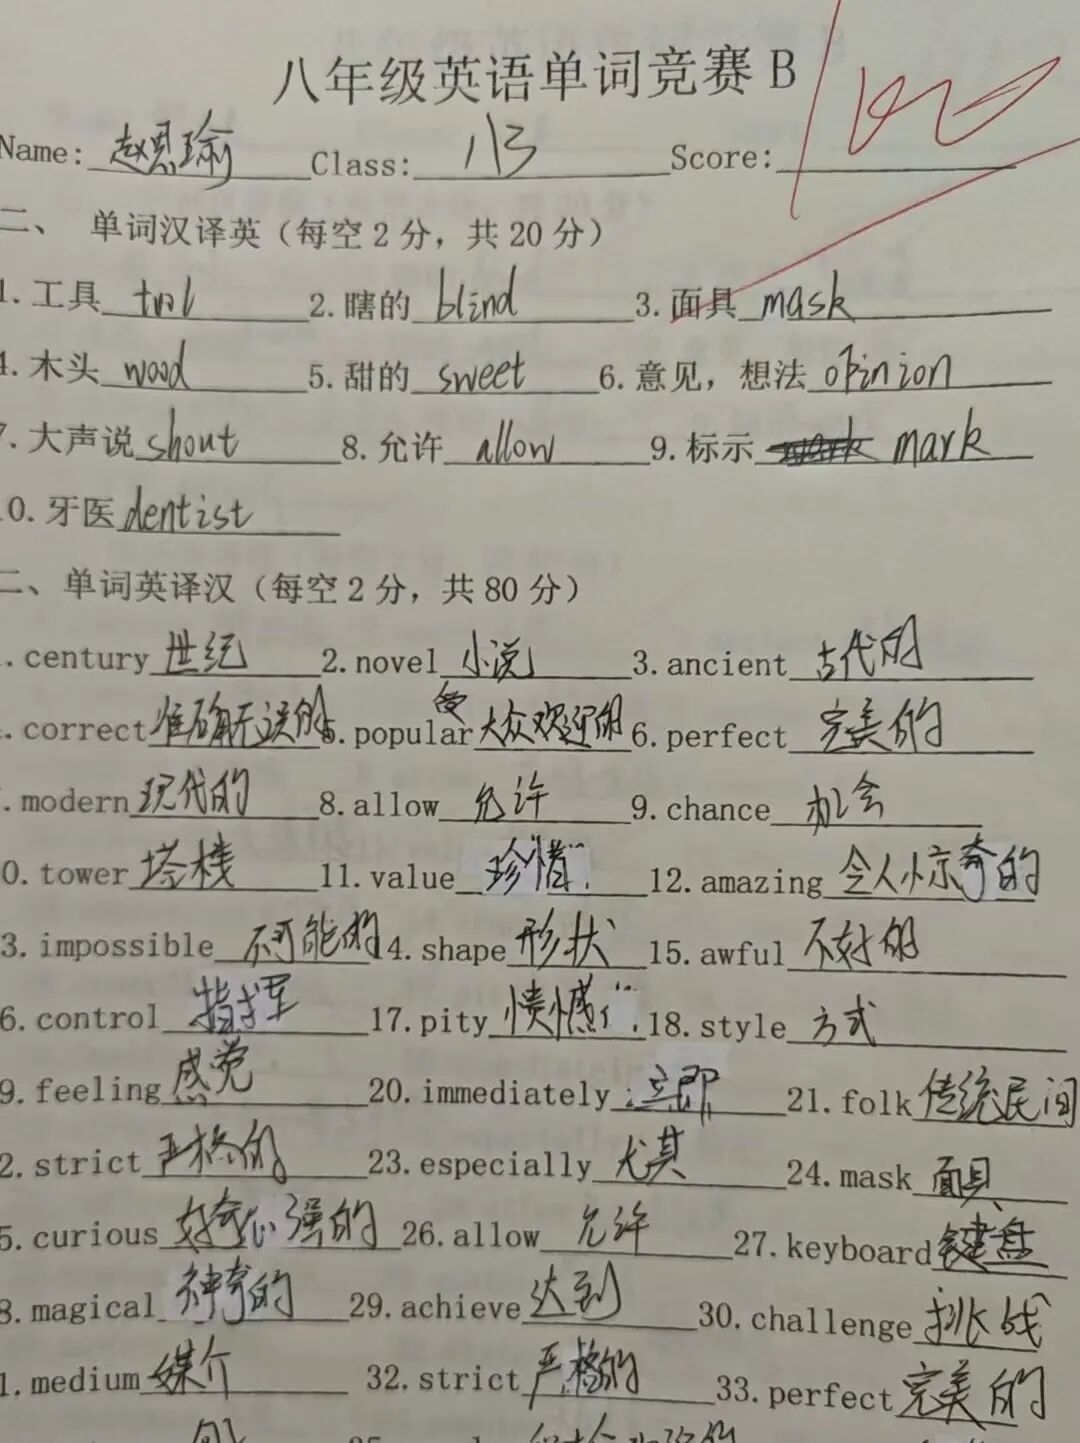 八年级英语单词竞赛 B 100
Name: 赵思瑜 Class: 113 Score:
二、 单词汉译英（每空2分，共20分）
1.工具 tool 2.瞎的 blind 3.面具 mask
4.木头 wood 5.甜的 sweet 6.意见，想法 opinion
7.大声说 shout 8.允许 allow 9.标示 mark
10.牙医 dentist
二、单词英译汉（每空2分，共80分）
1.century 世纪 2.novel 小说 3.ancient 古代的
4.correct 准确无误的 5.popular 受大众欢迎的 6.perfect 完美的
7.modern 现代的 8.allow 允许 9.chance 机会
10.tower 塔楼 11.value 珍惜 12.amazing 令人惊奇的
13.impossible 不可能的 14.shape 形状 15.awful 不好的
16.control 指挥 17.pity 憾 18.style 方式
19.feeling 感觉 20.immediately 立即 21.folk 传统民间
22.strict 严格的 23.especially 尤其 24.mask 面具
25.curious 好奇心强的 26.allow 允许 27.keyboard 键盘
28.magical 神奇的 29.achieve 达到 30.challenge 挑战
31.medium 媒介 32.strict 严格的 33.perfect 完美的